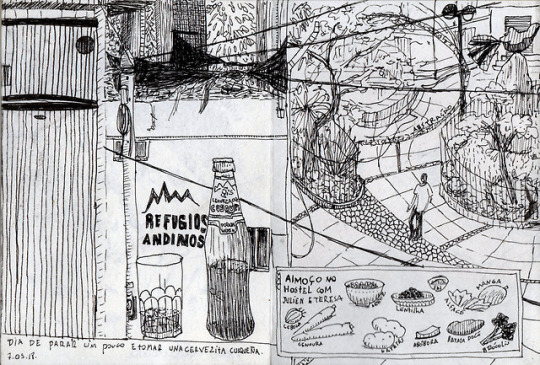 REFUGIOS
ANDINOS
CERVEZA
CUSQUEÑA
DIA DE PARAR UM POUCO E TOMAR UNA CERVEZITA CUSQUEÑA.
7.05.18.
ALMOÇO NO
HOSTEL COM
JULIEN E TERESA
CEBOLA
CENOURA
ARROZ
LENTILHA
BATATAS
ALFACE
MANGA
ABÓBORA
BATATA DOCE
BRÓCOLIS